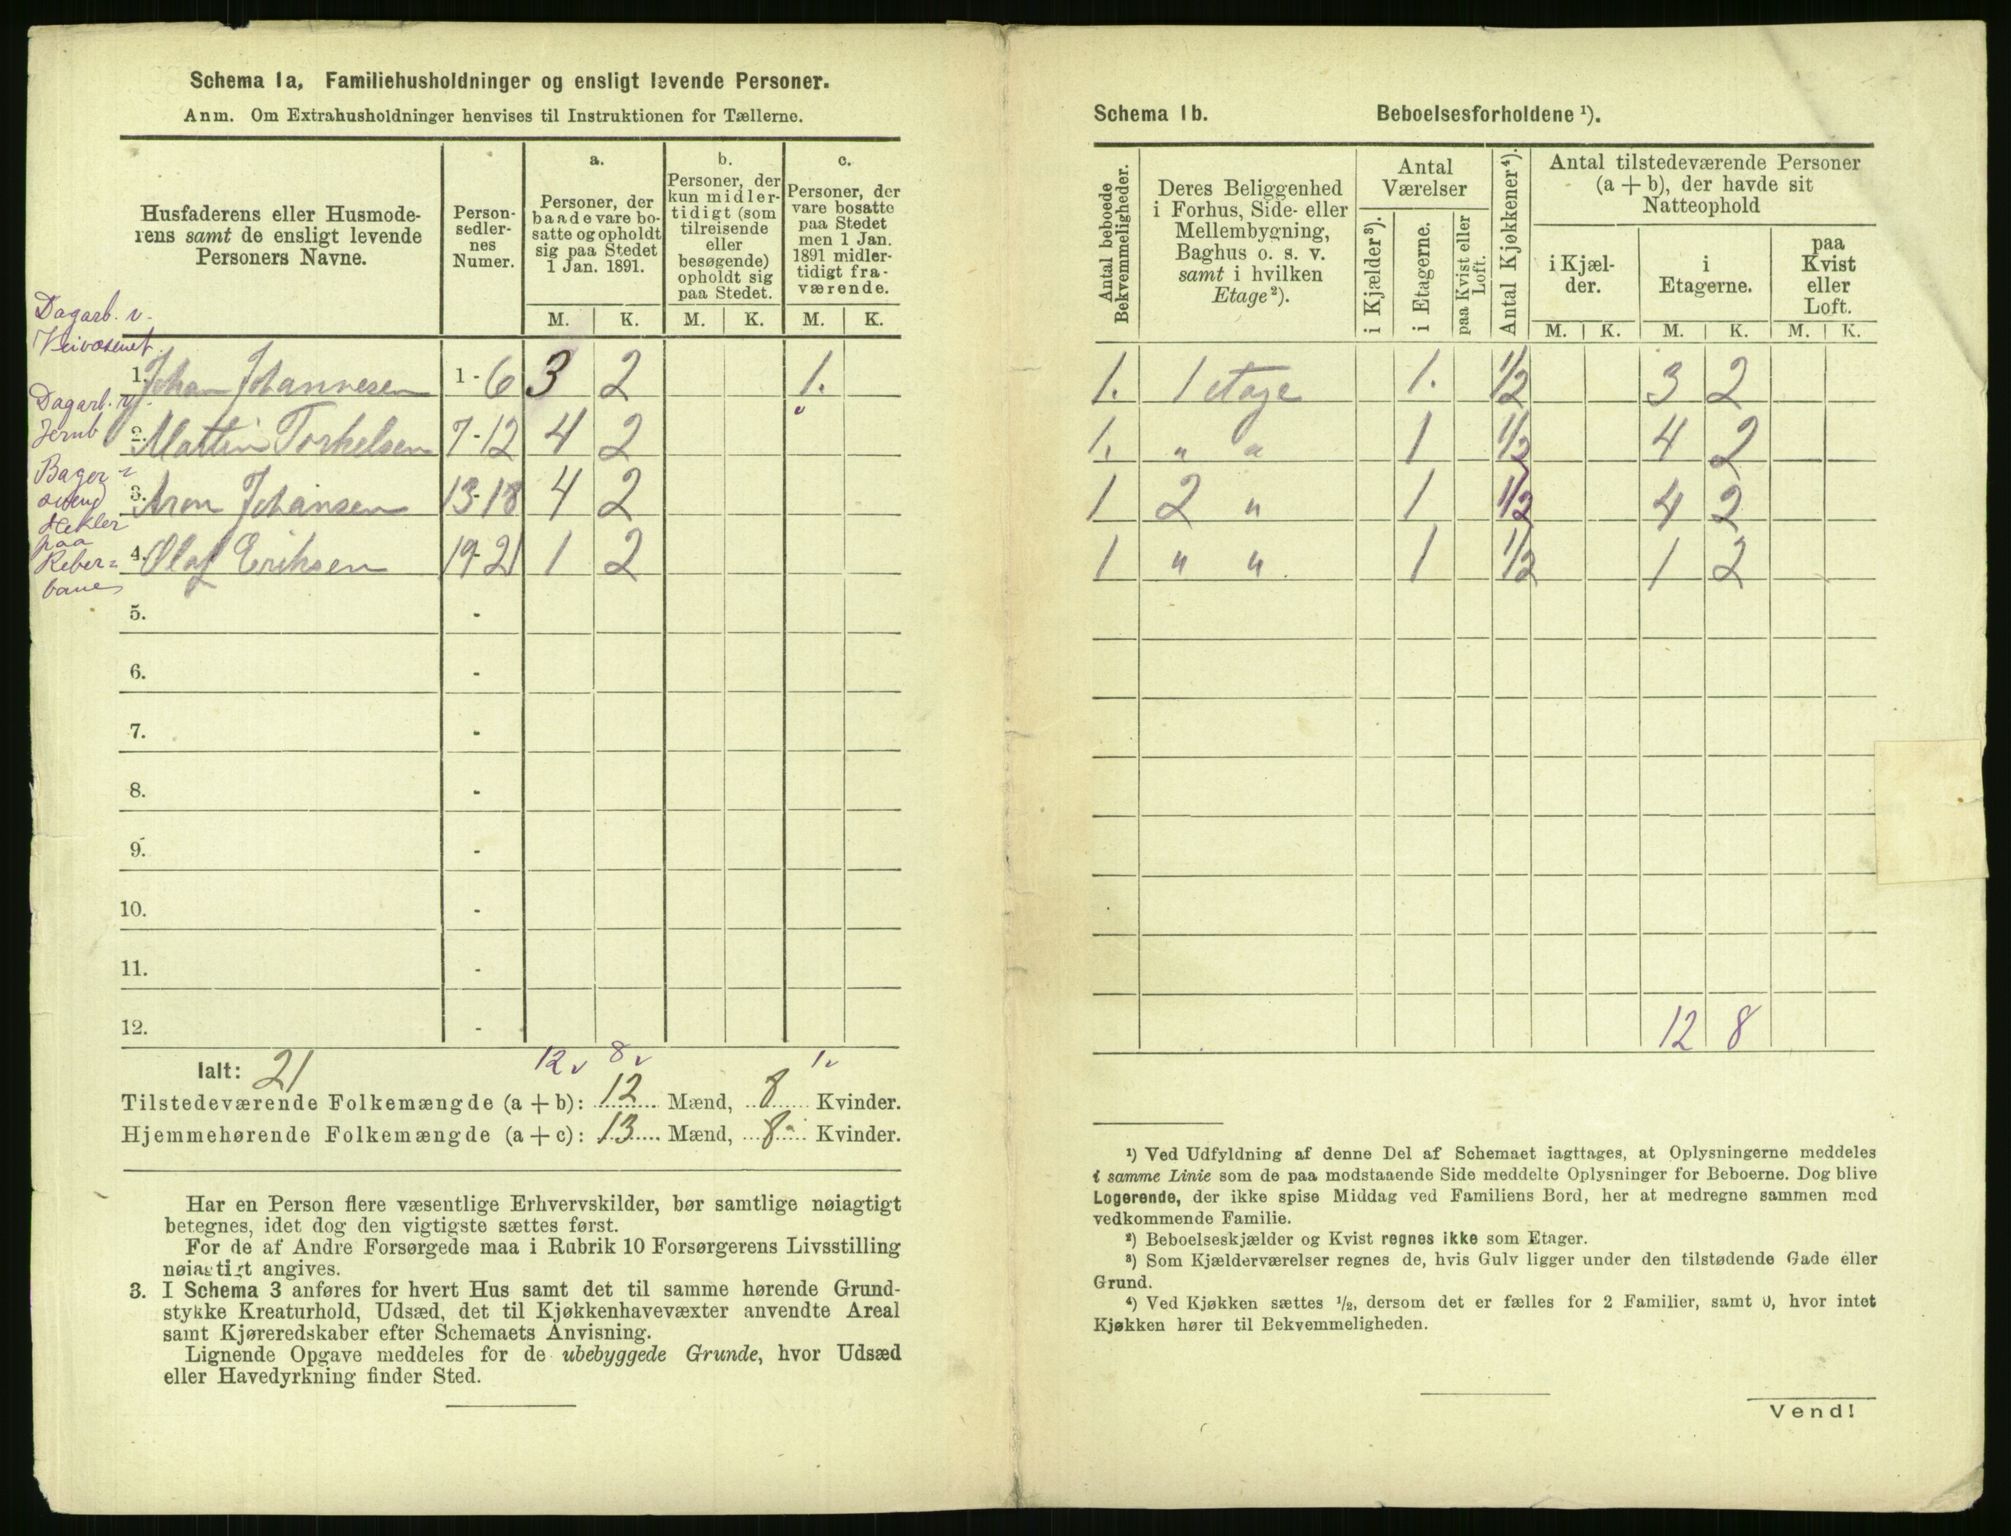 Schema 1a, Familiehusholdninger og ensligt levende Personer.
Anm. Om Extrahusholdninger henvises til Instruktionen for Tællerne.
Husfaderens eller Husmode-
rens samt de ensligt levende
Personers Navne.
Person-
sedler-
nes
Numer.
a.
Personer, der
baade vare bo-
satte og opholdt
sig paa Stedet
1 Jan. 1891.
b.
Personer, der
kun midler-
tidigt (som
tilreisende
eller
besøgende)
opholdt sig
paa Stedet.
c.
Personer, der
vare bosatte
paa Stedet
men 1 Jan.
1891 midler-
tidigt fra-
værende.
M. K. M. K. M. K.
Dagarb. v.
Veivæsenet.
1. Johan Johannesen 1 - 6 3 2 1.
Dagarb. v.
Jernb
2. Martin Torkelsen 7 - 12 4 2
Bager
svend
3. Aron Johansen 13 - 18 4 2
Hekler
paa
Reber-
bane
4. Olaf Eriksen 19 - 21 1 2
5. -
6. -
7. -
8. -
9. -
10. -
11. -
12. -
12 v 8 v 1 v
Ialt: 21
Tilstedeværende Folkemængde (a + b): 12 Mænd, 8 Kvinder.
Hjemmehørende Folkemængde (a + c): 13 Mænd, 8 Kvinder.
Har en Person flere væsentlige Erhvervskilder, bør samtlige nøiagtigt
betegnes, idet dog den vigtigste sættes først.
For de af Andre Forsørgede maa i Rubrik 10 Forsørgerens Livsstilling
nøiagtigt angives.
3. I Schema 3 anføres for hvert Hus samt det til samme hørende Grund-
stykke Kreaturhold, Udsæd, det til Kjøkkenhavevæxter anvendte Areal
samt Kjøreredskaber efter Schemaets Anvisning.
Lignende Opgave meddeles for de ubebyggede Grunde, hvor Udsæd
eller Havedyrkning finder Sted.
Schema 1b. Beboelsesforholdene ¹).
Antal beboede
Bekvemmeligheder.
Deres Beliggenhed
i Forhus, Side- eller
Mellembygning,
Baghus o. s. v.
samt i hvilken
Etage ²).
Antal
Værelser
i Kjælder ³).
i Etagerne.
paa Kvist eller
Loft.
Antal Kjøkkener ⁴).
Antal tilstedeværende Personer
(a + b), der havde sit
Natteophold
i Kjæl-
der.
i
Etagerne.
paa
Kvist
eller
Loft.
M. K. M. K. M. K.
1. 1 etage 1. 1/2 3 2
1. " " 1 1/2 4 2
1 2 " 1 1/2 4 2
1 " " 1 1/2 1 2
12 8
¹) Ved Udfyldning af denne Del af Schemaet iagttages, at Oplysningerne meddeles
i samme Linie som de paa modstaaende Side meddelte Oplysninger for Beboerne. Dog blive
Logerende, der ikke spise Middag ved Familiens Bord, her at medregne sammen med
vedkommende Familie.
²) Beboelseskjælder og Kvist regnes ikke som Etager.
³) Som Kjælderværelser regnes de, hvis Gulv ligger under den tilstødende Gade eller
Grund.
⁴) Ved Kjøkken sættes ¹/₂, dersom det er fælles for 2 Familier, samt 0, hvor intet
Kjøkken hører til Bekvemmeligheden.
Vend!